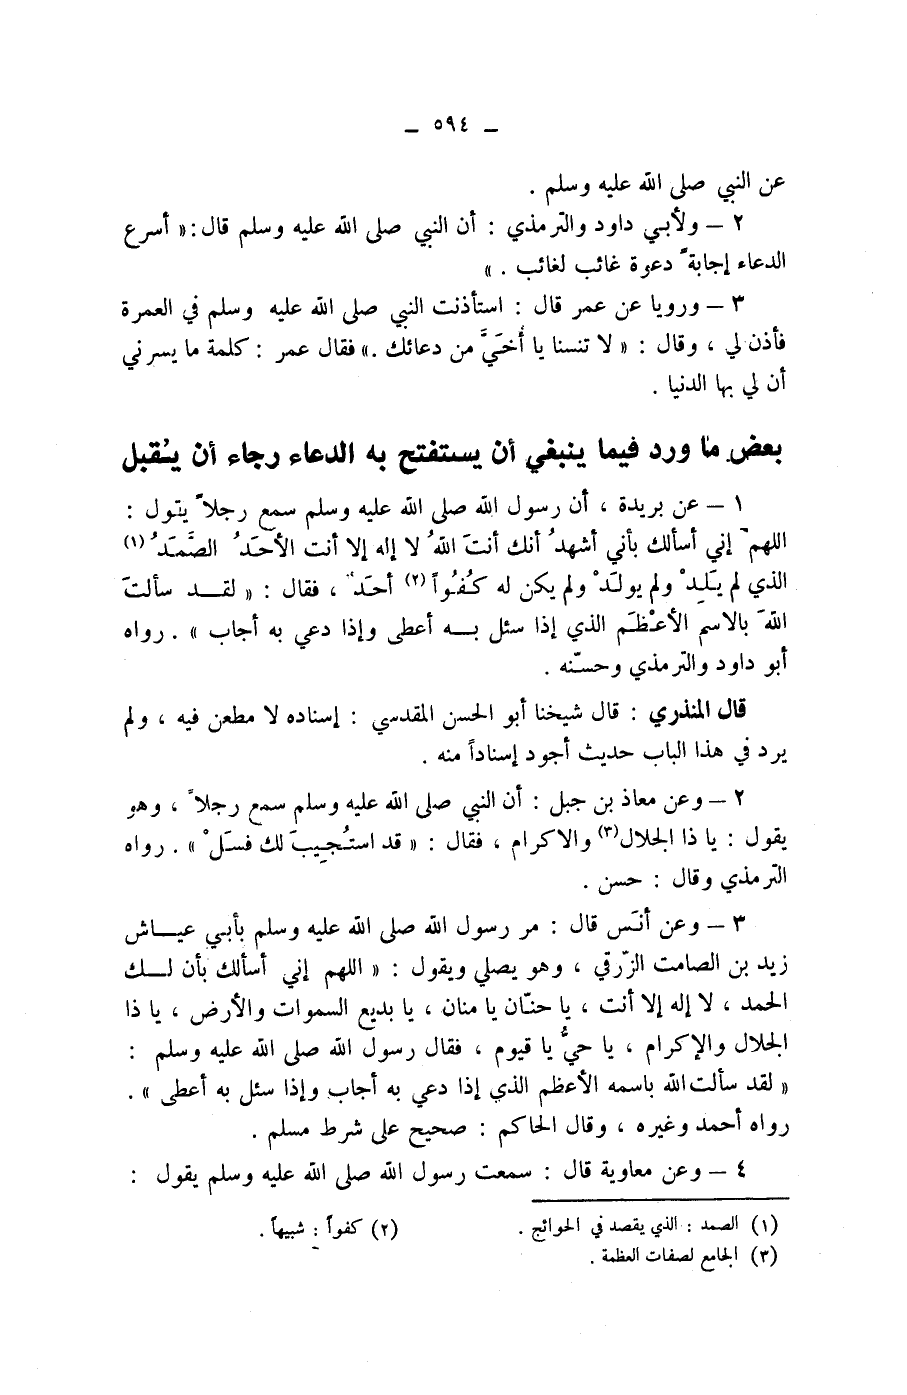 – ٥٩٤ –
عن النبي صلى الله عليه وسلم .
٢ – ولأبي داود والترمذي : أن النبي صلى الله عليه وسلم قال : « أسرع
الدعاء إجابةً دعوة غائب لغائب . »
٣ – ورويا عن عمر قال : استأذنت النبي صلى الله عليه وسلم في العمرة
فأذن لي ، وقال : « لا تنسنا يا أُخَيَّ من دعائك .» فقال عمر : كلمة ما يسرني
أن لي بها الدنيا .
بعض ما ورد فيما ينبغي أن يستفتح به الدعاء رجاء أن يُقبل
١ – عن بريدة ، أن رسول الله صلى الله عليه وسلم سمع رجلاً يتول :
اللهم إني أسألك بأني أشهدُ أنك أنتَ اللهُ لا إله إلا أنت الأحَدُ الصَّمَدُ (١)
الذي لم يَلِدْ ولم يولَدْ ولم يكن له كُفُواً (٢) أحَدٌ ، فقال : « لقد سألتَ
اللهَ بالاسم الأعْظَم الذي إذا سئل به أعطى وإذا دعي به أجاب » . رواه
أبو داود والترمذي وحسّنه .
قال المنذري : قال شيخنا أبو الحسن المقدسي : إسناده لا مطعن فيه ، ولم
يرد في هذا الباب حديث أجود إسناداً منه .
٢ – وعن معاذ بن جبل : أن النبي صلى الله عليه وسلم سمع رجلاً ، وهو
يقول : يا ذا الجلال(٣) والاكرام ، فقال : « قد استُجِيبَ لك فسَلْ » . رواه
الترمذي وقال : حسن .
٣ – وعن أنَس قال : مر رسول الله صلى الله عليه وسلم بأبي عياش
زيد بن الصامت الزّرقي ، وهو يصلي ويقول : « اللهم إني أسألك بأن لك
الحمد ، لا إله إلا أنت ، يا حنّان يا منان ، يا بديع السموات والأرض ، يا ذا
الجلال والإكرام ، يا حيُّ يا قيوم ، فقال رسول الله صلى الله عليه وسلم :
« لقد سألت الله باسمه الأعظم الذي إذا دعي به أجاب وإذا سئل به أعطى » .
رواه أحمد وغيره ، وقال الحاكم : صحيح على شرط مسلم .
٤ – وعن معاوية قال : سمعت رسول الله صلى الله عليه وسلم يقول :
(١) الصمد : الذي يقصد في الحوائج . (٢) كفواً : شبيهاً .
(٣) الجامع لصفات العظمة .